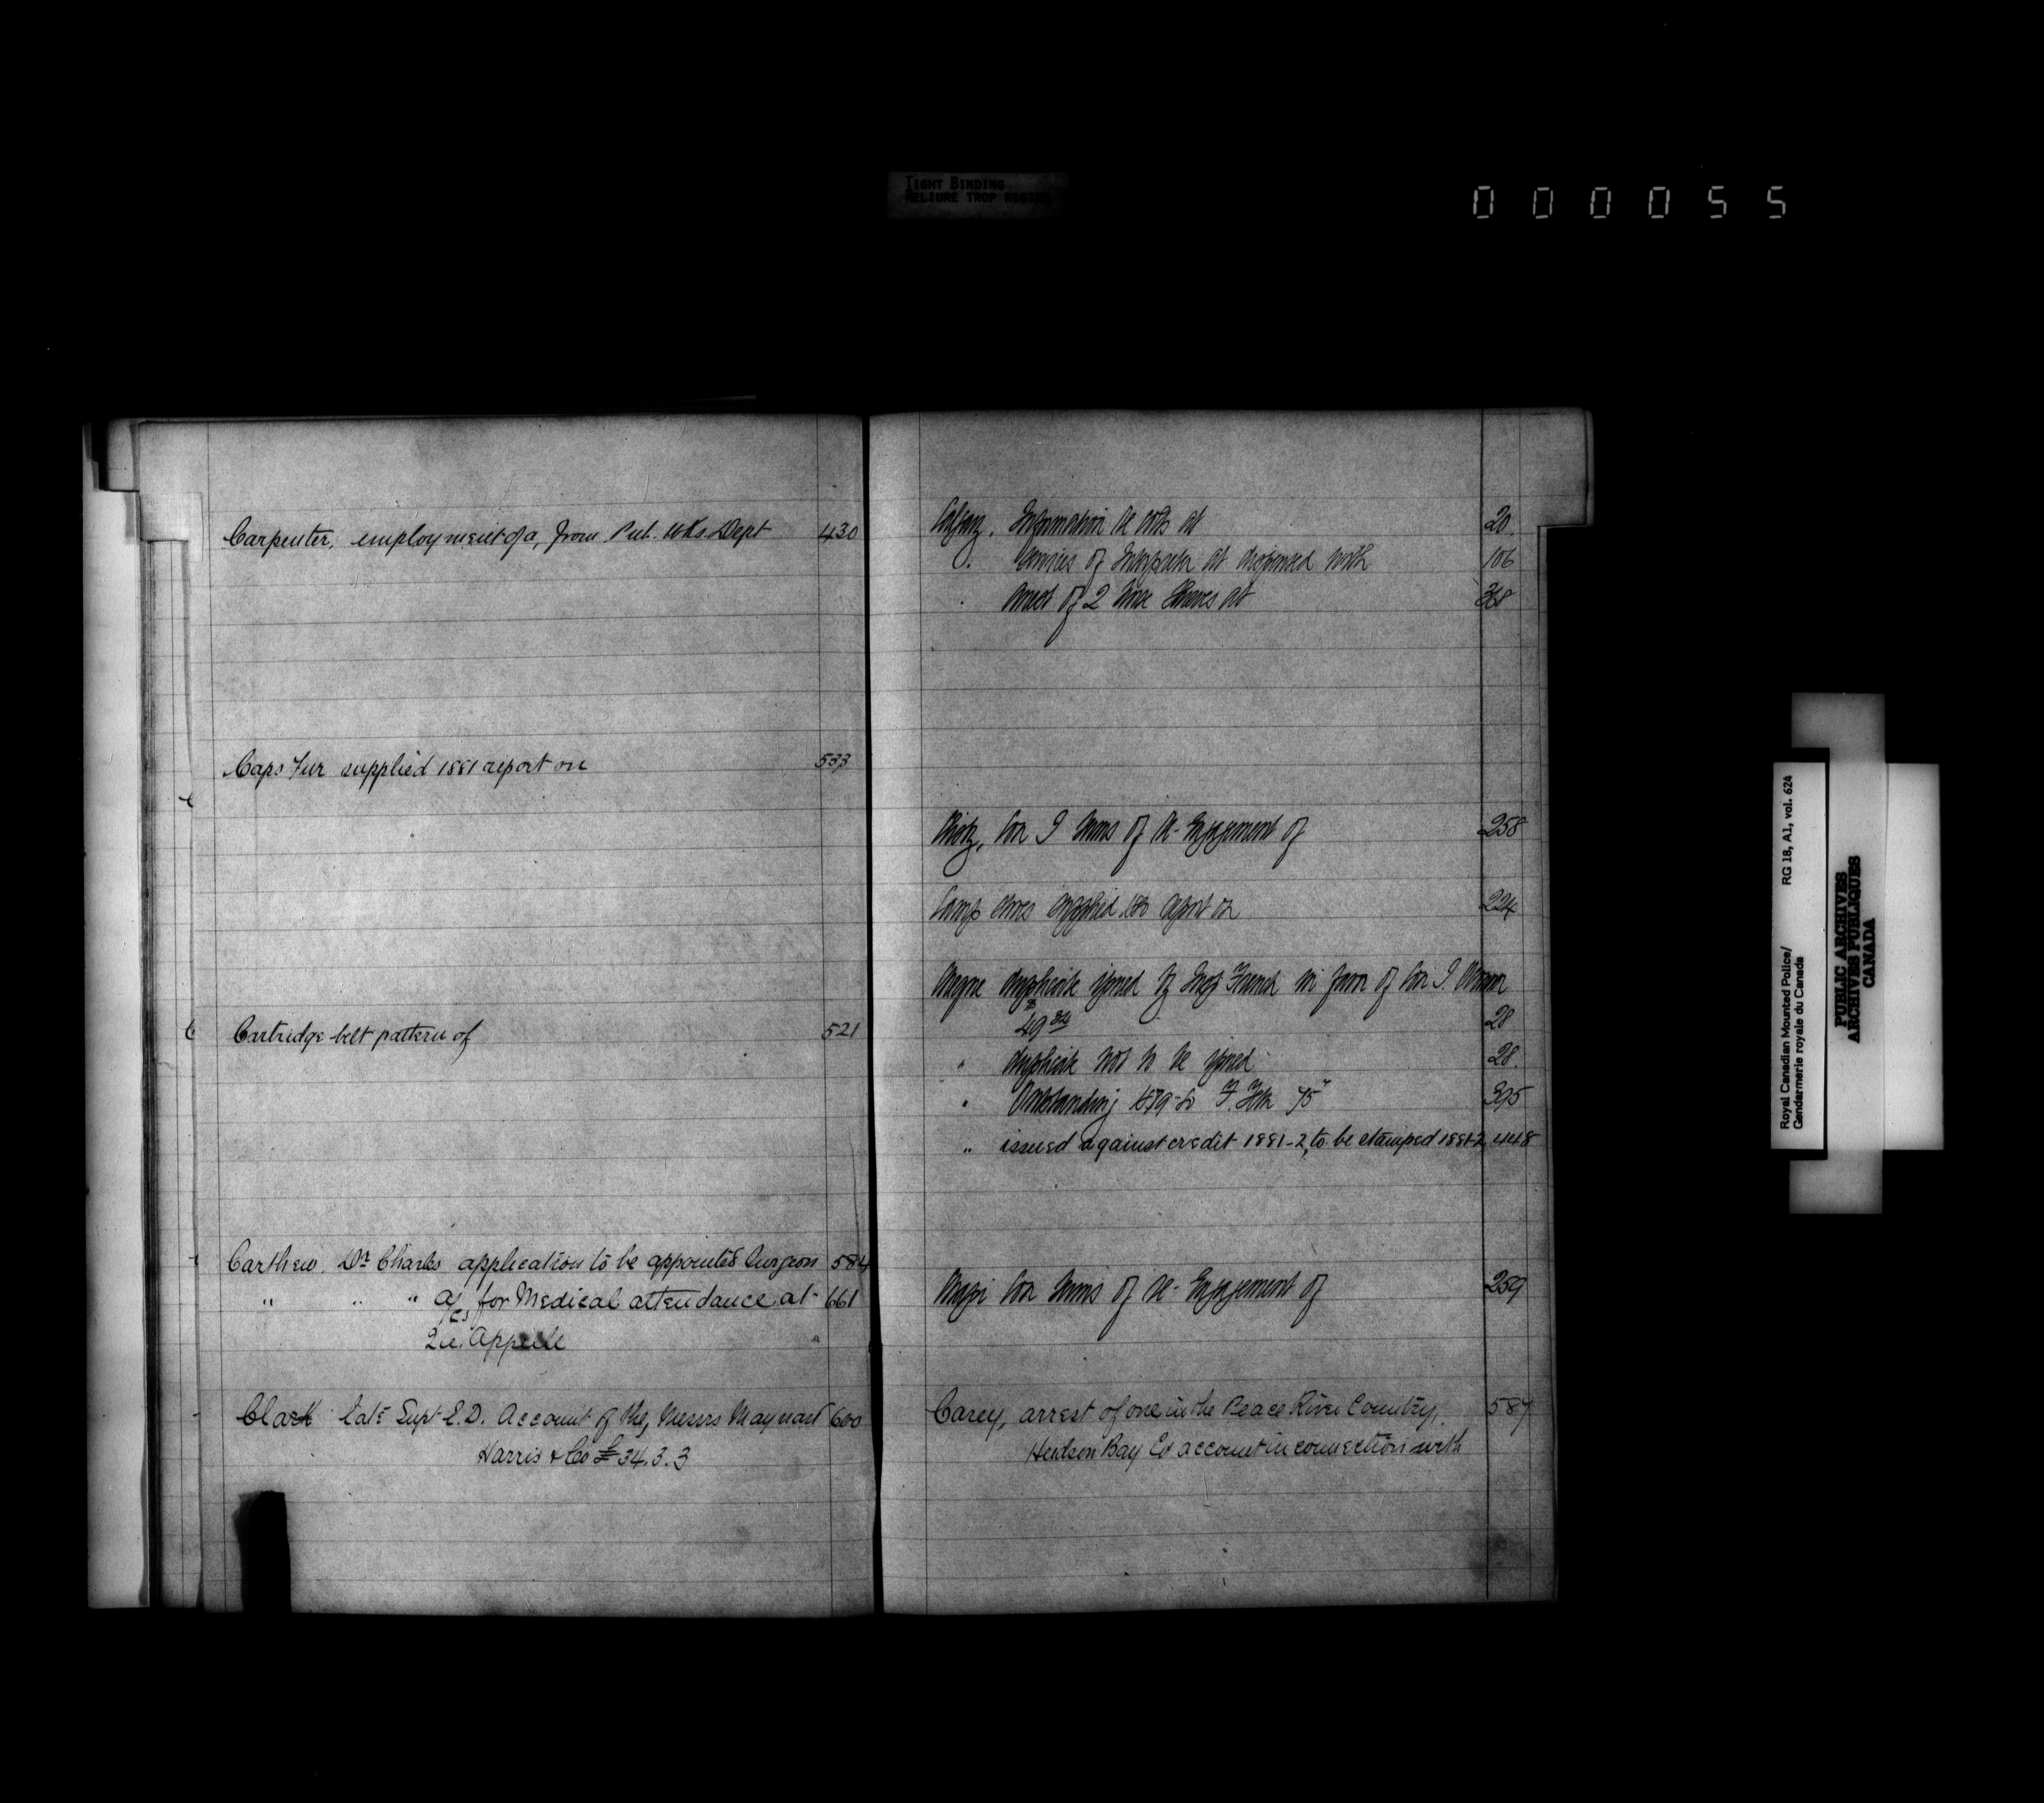 TIGHT BINDING
RELIURE TROP
000055
Carpenter, employment of a, from Pub. Wks. Dept 430
Caps Fur supplied 1881 report on 533
Cartridge belt pattern of 521
Carthew. Dr Charles application to be appointed Surgeon 584
" " " a/c for Medical attendance at 661
Qu'Appelle
Clark late Supt E.D. Account of the, Messrs Maynard 600
Harris & Co £34.3.3
Calgary. Information re at 20.
". Services of Interpreter at dispensed with 106
" Arrest of 2 Horse thieves at 368
Re-Engagement of 258
Camp supplied report on 224
Cheque duplicate issued by Insp French in favor of
49 28
" duplicate not to be issued 28.
" Outstanding 1879-80 395
" issued against credit 1881-2, to be stamped 1881-2 448
terms of Re-Engagement of 259
Carey, arrest of one in the Peace River Country, 587
Hudson Bay Co account in connection with
Royal Canadian Mounted Police/
Gendarmerie royale du Canada
RG 18, A1, vol. 624
PUBLIC ARCHIVES
ARCHIVES PUBLIQUES
CANADA